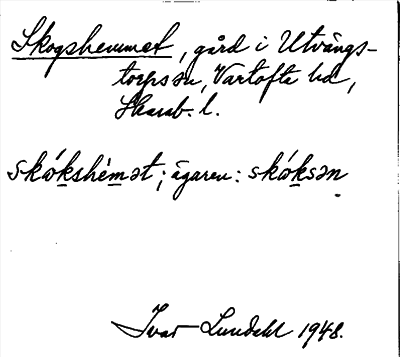 Skogshemmet, gård i Utvängs-
torps sn, Vartofta hd,
Skarab. l.
skό̱kshém̱ət; ägaren: skό̱ksən
Ivar Lundahl 1948.